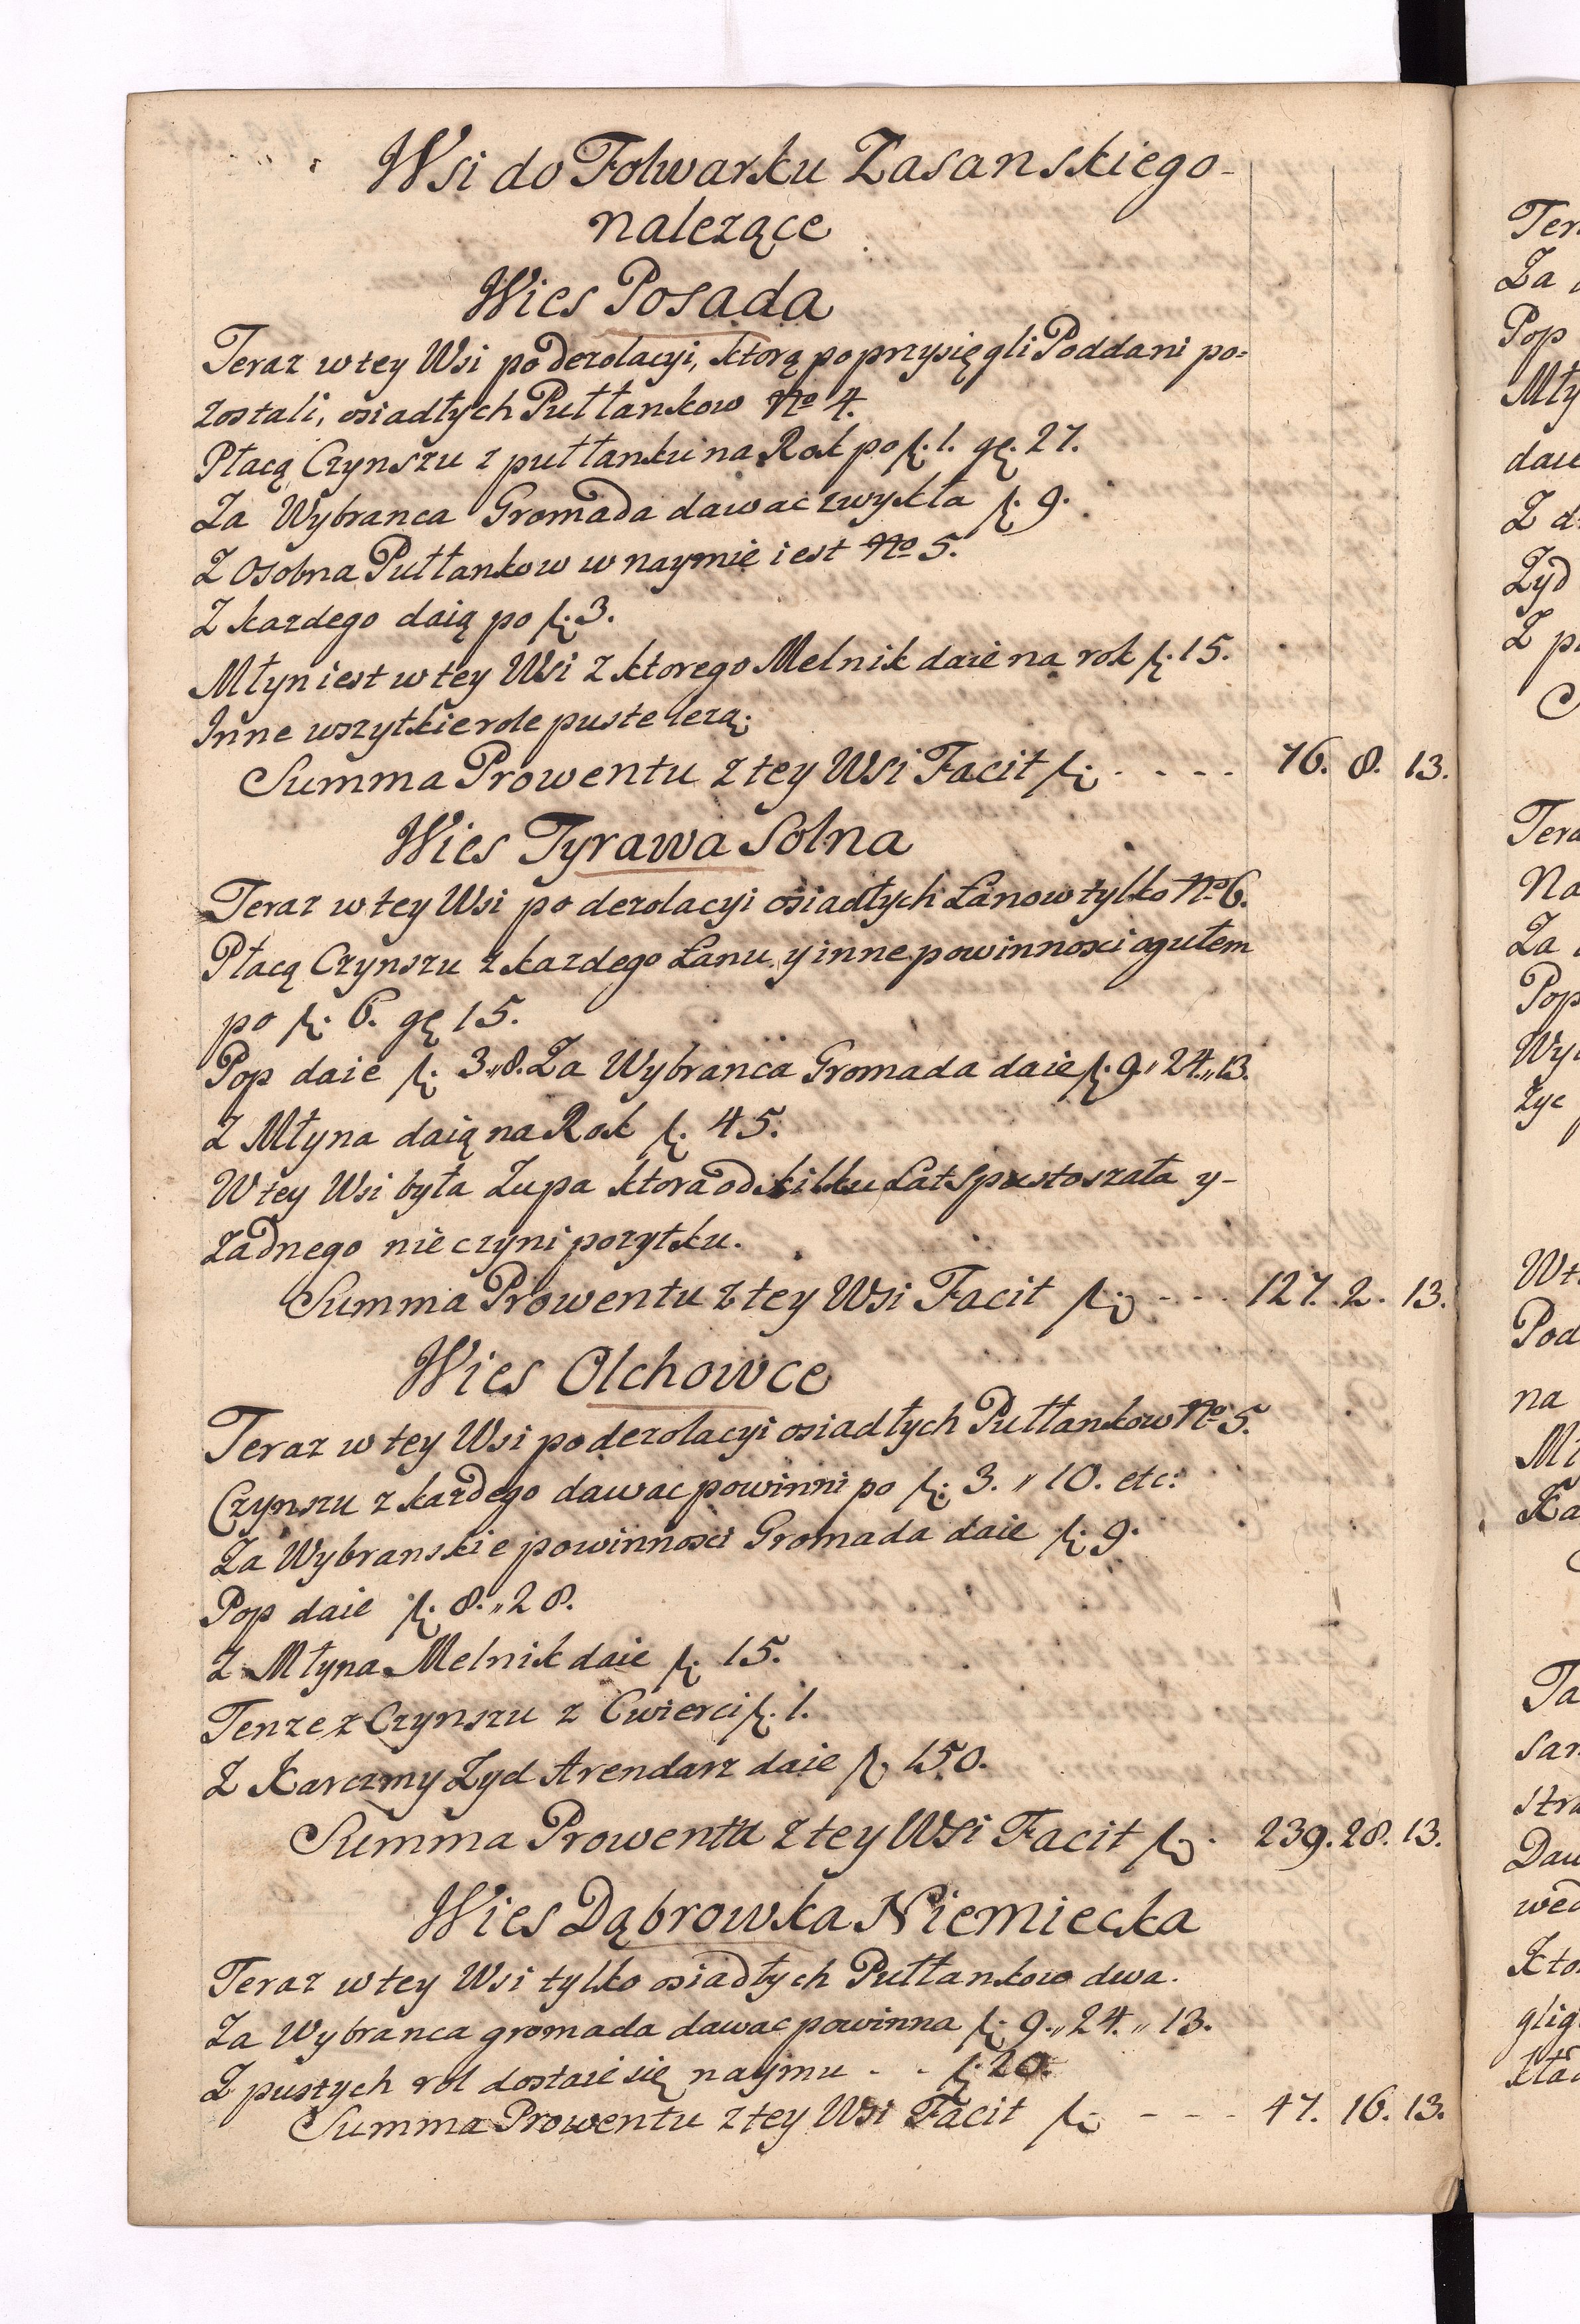 Wsi do Folwarku Zasanskiego-
nalezące
Wies Posada
Teraz w tey Wsi po dezolacyi, ktorą poprzysięgli Poddani po=
zostali, osiadłych Pułłankow No 4.
Płacą Czynszu z pułłanku na Rok po f. 1. gę. 27.
Za Wybranca Gromada dawac zwykła f. 9.
Z osobna Pułłankow w naymie iest No 5.
Z kazdego daią po f. 3.
Młyn iest w tey Wsi z ktorego Melnik daie na rok f. 15.
Inne wszytkie role puste lezą.
Summa Prowentu z tey Wsi Facit f. - - - - 76. 8. 13.
Wies Tyrawa Solna
Teraz w tey Wsi po dezolacyi osiadłych Łanow tylko No 6.
Płacą Czynszu z kazdego Łanu y inne powinnosci ogułem
po f. 6. gę 15.
Pop daie f. 3„8. Za Wybranca Gromada daie f. 9„24„13.
Z Młyna daią na Rok f. 45.
W tey Wsi była Zupa ktora od kilku Lat spustoszała y-
zadnego nie czyni pozytku.
Summa Prowentu z tey Wsi Facit f. - - - 127. 2. 13.
Wies Olchowce
Teraz w tey Wsi po dezolacyi osiadłych Pułłankow No 5.
Czynszu z kazdego dawac powinni po f. 3. „ 10. etc:
Za Wybranskie powinnosci Gromada daie f. 9.
Pop daie f. 8. „ 28.
Z Młyna Melnik daie f. 15.
Tenze z Czynszu z Cwierci f. 1.
Z Karczmy Zyd Arendarz daie f. 150.
Summa Prowentu z tey Wsi Facit f. 239. 28. 13.
Wies Dąbrowka Niemiecka
Teraz w tey Wsi tylko osiadłych Pułłankow dwa.
Za Wybranca gromada dawac powinna f. 9. „ 24. „ 13.
Z pustych rol dostaie się naymu - - f. 20.
Summa Prowentu z tey Wsi Facit f. - - - 47. 16. 13.